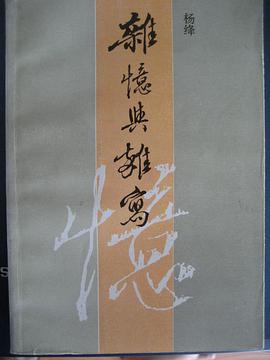 杨绛
雜憶與雜寫
憶